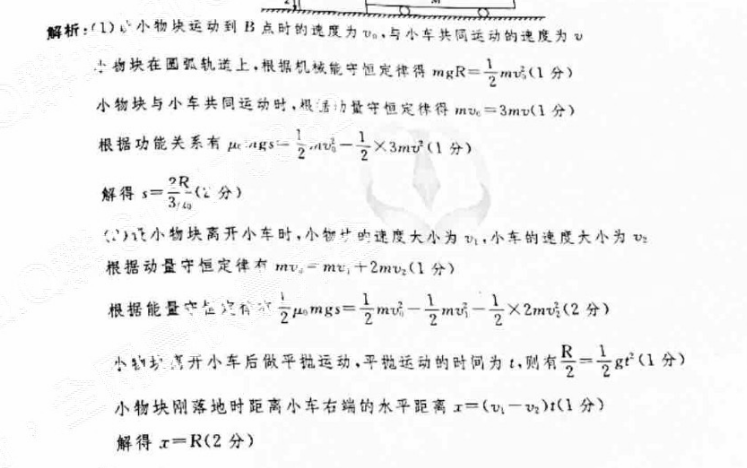 解析:(1)设小物块运动到 B 点时的速度为 v₀,与小车共同运动的速度为 v
小物块在圆弧轨道上,根据机械能守恒定律得 mgR=\frac{1}{2}mv₀²(1 分)
小物块与小车共同运动时,根据动量守恒定律得 mv₀=3mv(1 分)
根据功能关系有 μ₀mgs=\frac{1}{2}mv₀²-\frac{1}{2}×3mv²(1 分)
解得 s=\frac{2R}{3μ₀}(2 分)
(2)设小物块离开小车时,小物块的速度大小为 v₁,小车的速度大小为 v₂
根据动量守恒定律有 mv₀=mv₁+2mv₂(1 分)
根据能量守恒定律有\frac{1}{2}μ₀mgs=\frac{1}{2}mv₀²-\frac{1}{2}mv₁²-\frac{1}{2}×2mv₂²(2 分)
小物块离开小车后做平抛运动,平抛运动的时间为 t,则有\frac{R}{2}=\frac{1}{2}gt²(1 分)
小物块刚落地时距离小车右端的水平距离 x=(v₁-v₂)t(1 分)
解得 x=R(2 分)